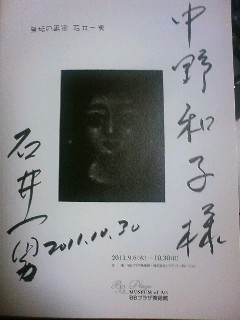 の画家 石井一男
中野和子様
石井一男
2011.10.30
2011.9.6(火) — 10.30(日)
BB Plaza
MUSEUM of Art
BBプラザ美術館